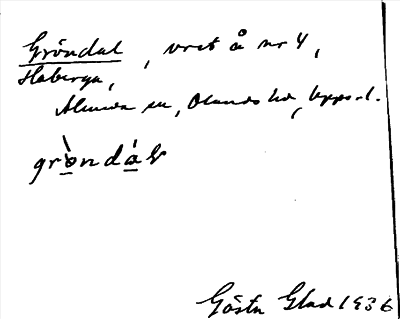 Gröndal, vret å nr 4,
Haberga,
Alunda sn, Olands hd, Uppsal.
grönda
Gösta Glad 1936